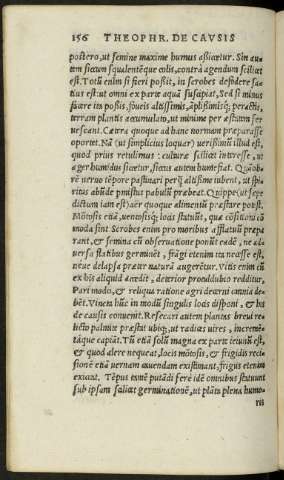 156 THEOPHR. DE CAVSIS
postero, ut semine maxime humus afficietur. Sin au-
tem siccum squalentéque colis, contrà agendum scilicet
est. Totũ enim si fieri possit, in scrobes defodere sa-
tius est: ut omni ex parte aquã suscipiat, Sed si minus
facere ita possis, foueis altissimis, āplissimisq́; peractis,
terram plantis accumulato, ut minime per æstum fer
uescant. Cætera quoque ad hanc normam præparasse
oportet. Nā (ut simplicius loquar) uerissimũ illud est,
quod prius retulimus: culturæ scilicet interesse, ut
ager humidus siccetur, siccus autem humefiat. Quāob-
rē uerno tēpore pastinari per altissime iubent, ut spi-
ritus abũde pinctus pabulũ præbeat. Quippe (ut sæpe
dictum iam est) aër quoque alimentũ præstare potest.
Mōtosis etiā, uentosisq́; locis statuũt, quæ cōsitioni cō
moda sint Scrobes enim pro moribus afflatuũ præpa
rant, & semina cũ obseruatione ponũt eadē, ne ad-
uersa flatibus germinēt, frāgi etenim ita necesse est,
neue delapsa præter naturā augeretur. Vitis enim cũ
ex his aliquid accedit, deterior prouididbio redditur.
Pari modo, & reliqua ratione agri dearari omnia de-
bēt. Vineæ hũc in modũ singulis locis disponi, & his
de causis conuenit. Resecari autem plantas breui re-
lictio palmite præstat ubiq́;, ut radices uires, incremē-
tāque capiāt. Tũ etiā solũ magna ex parte ieiunũ est,
& quod alere nequeat, locis mōtosis, & frigidis recti-
sionē etiā uernam euadendam existimant, frigus etenim
exurit. Tēpus itē putādi ferè idē omnibus statuunt
sub ipsam scilicet germinationē, ut plātæ plena humo-
ris